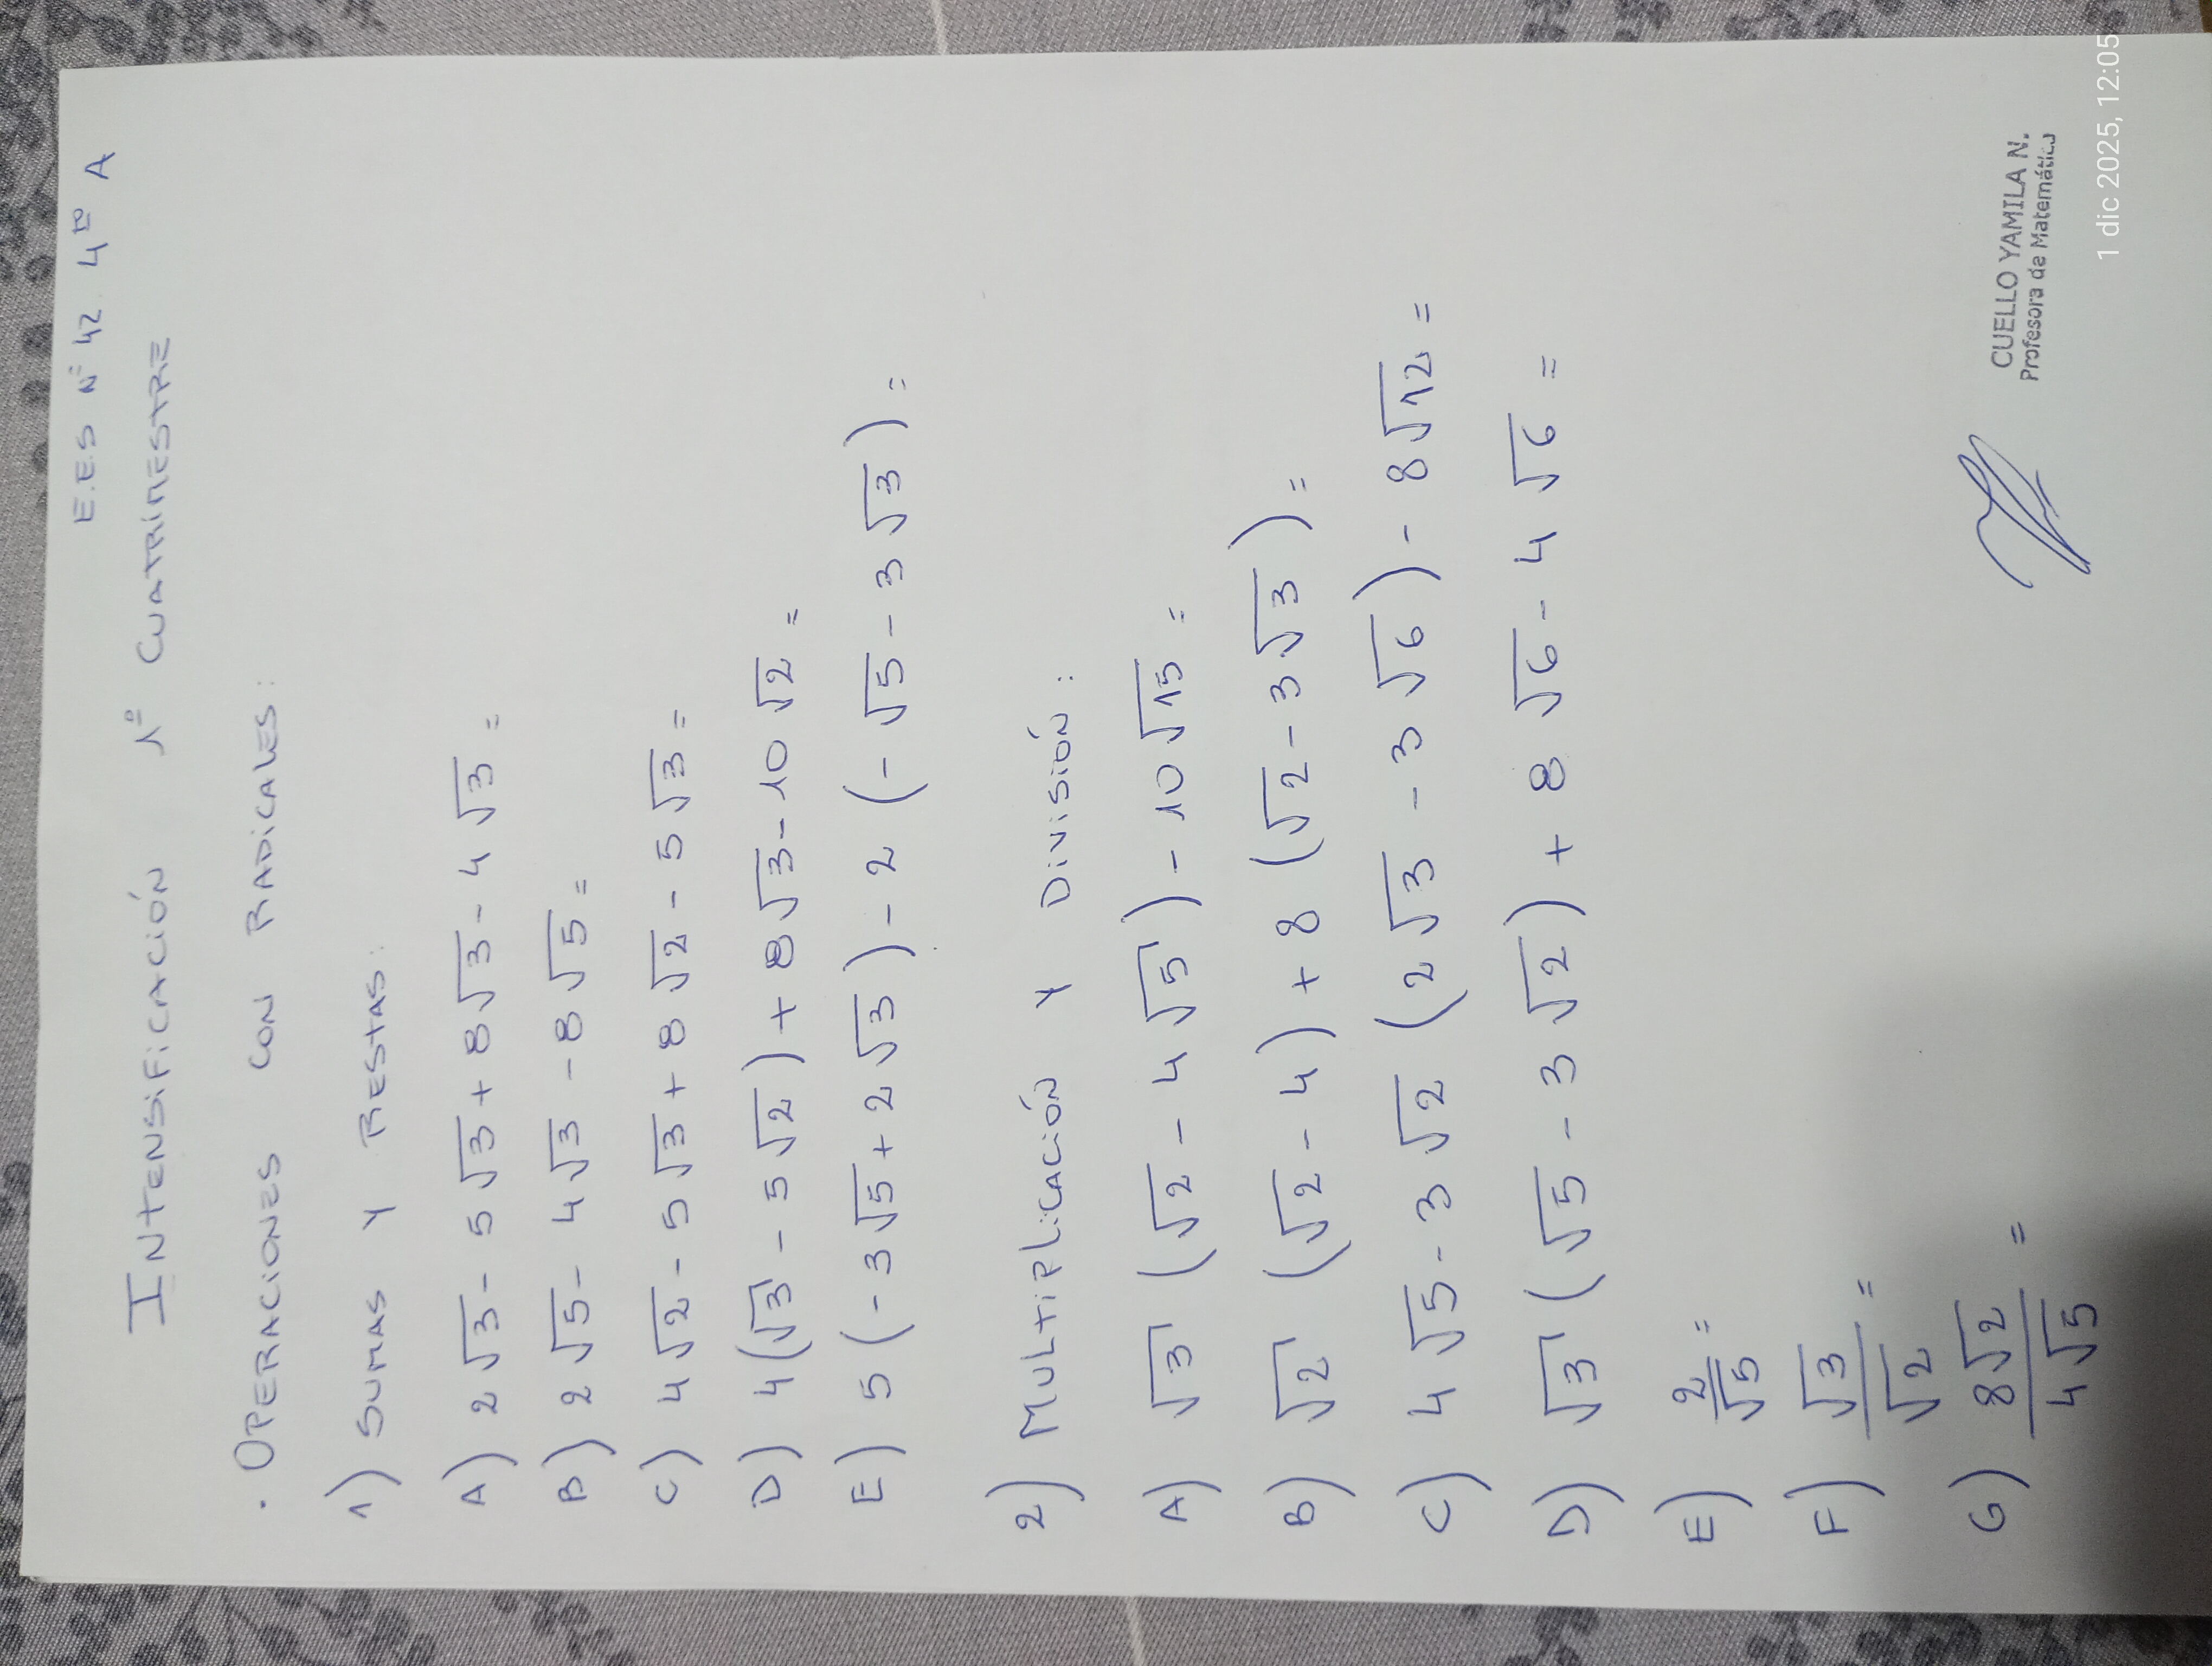 E.E.S Nº 42. 4to A
INTENSIFICACIÓN 1º CUATRIMESTRE
. OPERACIONES CON RADICALES:
1) SUMAS Y RESTAS:
A) 2√3 - 5√3 + 8√3 - 4√3 =
B) 2√5 - 4√3 - 8√5 =
C) 4√2 - 5√3 + 8√2 - 5√3 =
D) 4(√3 - 5√2) + 8√3 - 10√2 =
E) 5(-3√5 + 2√3) - 2(-√5 - 3√3) =
2) MULTIPLICACIÓN Y DIVISIÓN:
A) √3 (√2 - 4√5) - 10√15 =
B) √2 (√2 - 4) + 8 (√2 - 3√3) =
C) 4√5 - 3√2 (2√3 - 3√6) - 8√12 =
D) √3 (√5 - 3√2) + 8√6 - 4√6 =
E) 2/√5 =
F) √3/√2 =
G) 8√2/4√5 =
CUELLO YAMILA N.
Profesora de Matemática
1 dic 2025, 12:05